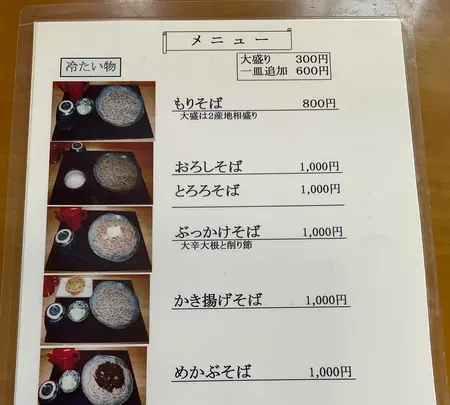 メニュー
大盛り 300円
一皿追加 600円
冷たい物
もりそば 800円
大盛は2産地相盛り
おろしそば 1,000円
とろろそば 1,000円
ぶっかけそば 1,000円
大辛大根と削り節
かき揚げそば 1,000円
めかぶそば 1,000円